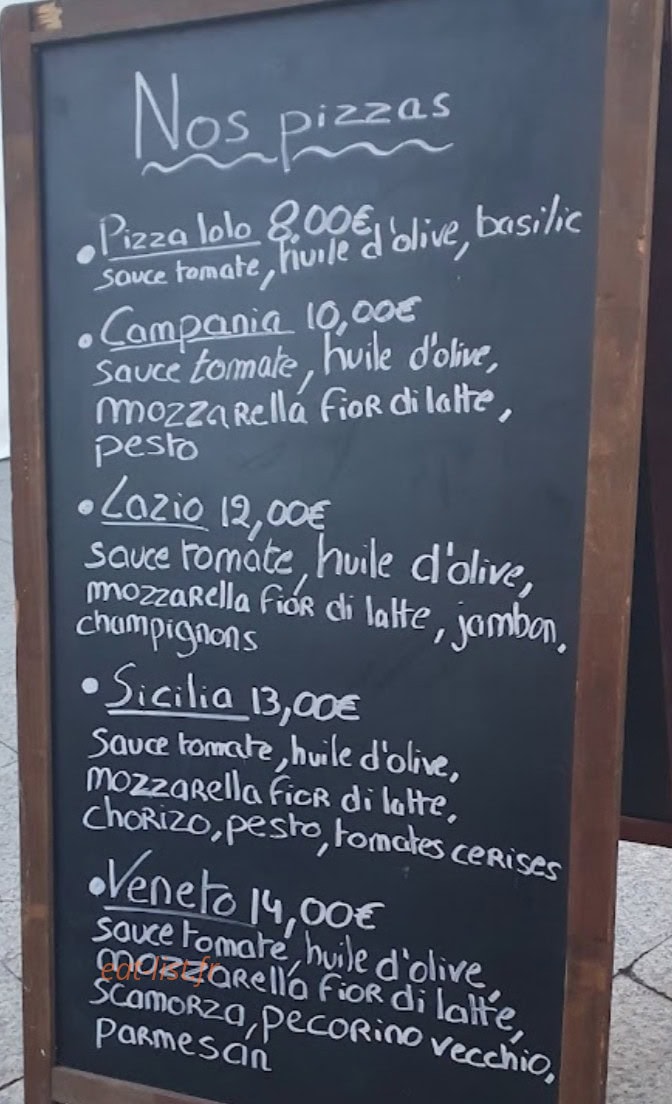 Nos pizzas
• Pizza lolo 8.00€
sauce tomate, huile d'olive, basilic
• Campania 10,00€
sauce tomate, huile d'olive,
mozzarella fior di latte,
pesto
• Lazio 12,00€
sauce tomate, huile d'olive,
mozzarella fior di latte, jambon,
champignons
• Sicilia 13,00€
sauce tomate, huile d'olive,
mozzarella fior di latte,
chorizo, pesto, tomates cerises
• Veneto 14,00€
sauce tomate, huile d'olive,
mozzarella fior di latte,
eat-list.fr
scamorza, pecorino vecchio,
parmesan